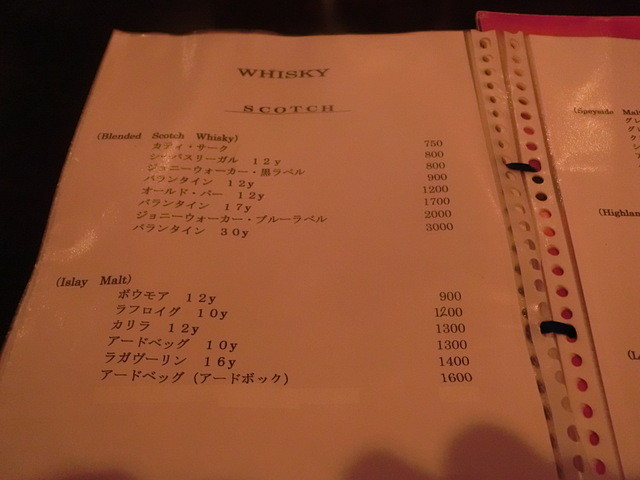 WHISKY
SCOTCH
(Blended Scotch Whisky)
カティ・サーク 750
シーバスリーガル 12y 800
ジョニーウォーカー・黒ラベル 800
バランタイン 12y 900
オールド・パー 12y 1200
バランタイン 17y 1700
ジョニーウォーカー・ブルーラベル 2000
バランタイン 30y 3000
(Islay Malt)
ボウモア 12y 900
ラフロイグ 10y 1200
カリラ 12y 1300
アードベッグ 10y 1300
ラガヴーリン 16y 1400
アードベッグ (アードボック) 1600
(Speyside Mal
グレ
グ
ク
シ
(Highlan
(L